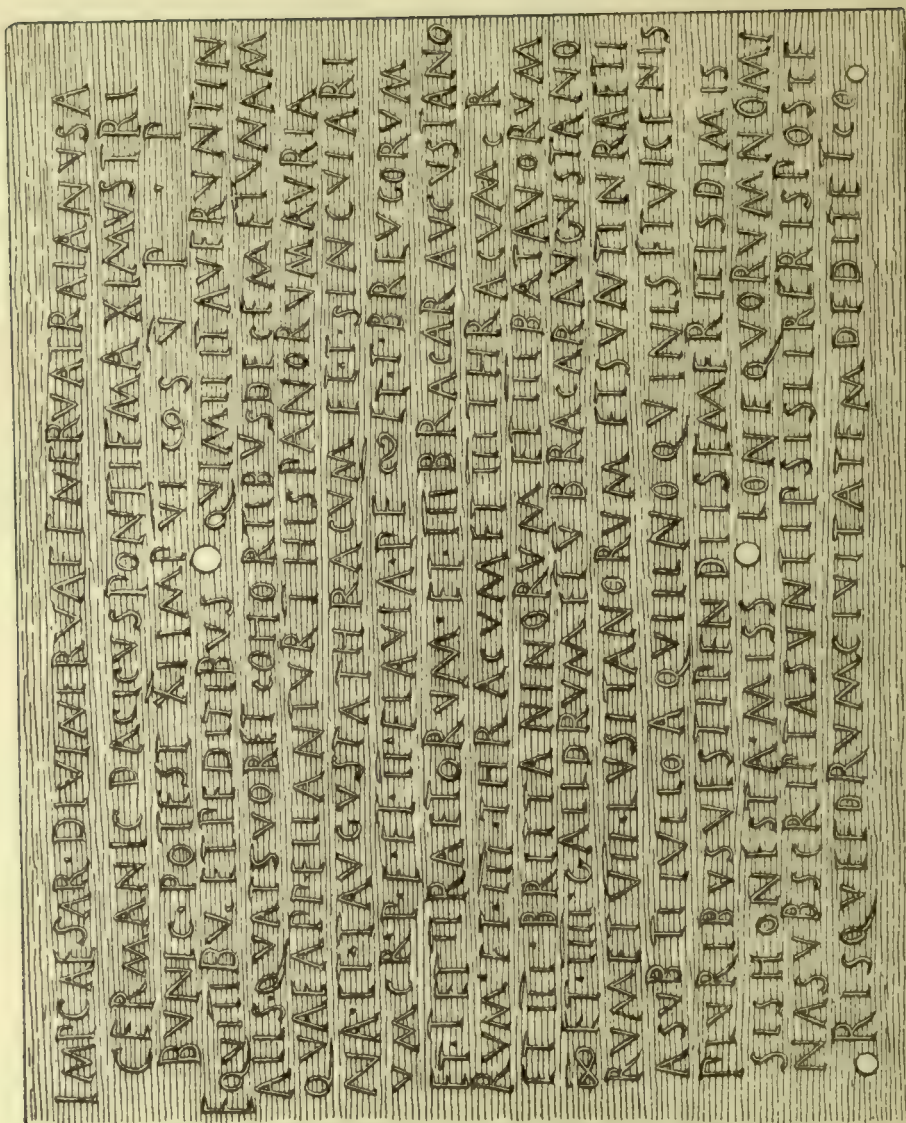 IMP CAESAR·DIVI NERVAE F NERVA TRAIANVS A
GERMANIC DACICVS PONTIF MAXIMVS TRI
BVNIC·POTEST XI IMP VI COS V P · P
EQVITIBV·ET PEDITIBVS QVI MILITAVERVNT IN
ALIS·QVATTVOR ET COHORTIBVS DECEM ET VNAM
QVAE APPELLANTVR I HISPANORVM AVRIA
NA ET·I AVGVSTA THRACVM ET·I SINGVLARI
VM C·R·P·F·ET·II·FLAVIA·P F ∞ ET·I·BREVGORVM
ET·I ET II RAETORVM·ET·III BRACARAVGVSTANO
RVM·ET·III·THRACVM ET·III THRACVM C R
ET III·BRITTANNORVM ET III BATAVORVM
∞ ET·IIII·GALLORVM ET V BRACARAVGVSTANO
RVM ET VII·LVSITANORVM ET SVNT IN RAETI
A SVB TI IVLIO AQVILINO QVINIS ET VICENIS
PLVRIBVSVE STIPENDIIS EMERITIS DIMIS
SIS HONESTA·MISSIONE QVORVM NOMI
NA SVBSCRIPTA SVNT IPSIS LIBERIS POSTE
RISQVE EORVM CIVITATEM DEDIT ET CO